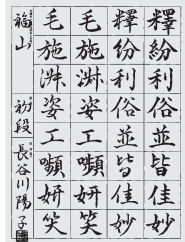 釋紛利俗並皆佳妙
釋紛利俗並皆佳妙
毛施淑姿工嚬妍笑
毛施淑姿工嚬妍笑
福山
初段 長谷川陽子